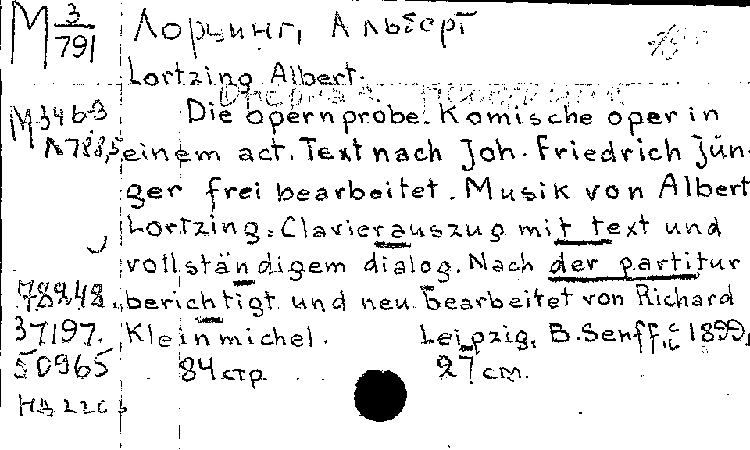 М 3/791 Лорцинг, Альберт
Lortzing Albert.
M346B Die opernprobe. Komische oper in
einem act. Text nach Joh. Friedrich Jün-
ger frei bearbeitet. Musik von Albert
Lortzing. Clavierauszug mit text und
vollständigem dialog. Nach der partitur
78248. berichtigt und neu bearbeitet von Richard
37197. Kleinmichel. Leipzig, B. Senff, c 1899,
50965 84 стр 27 см.